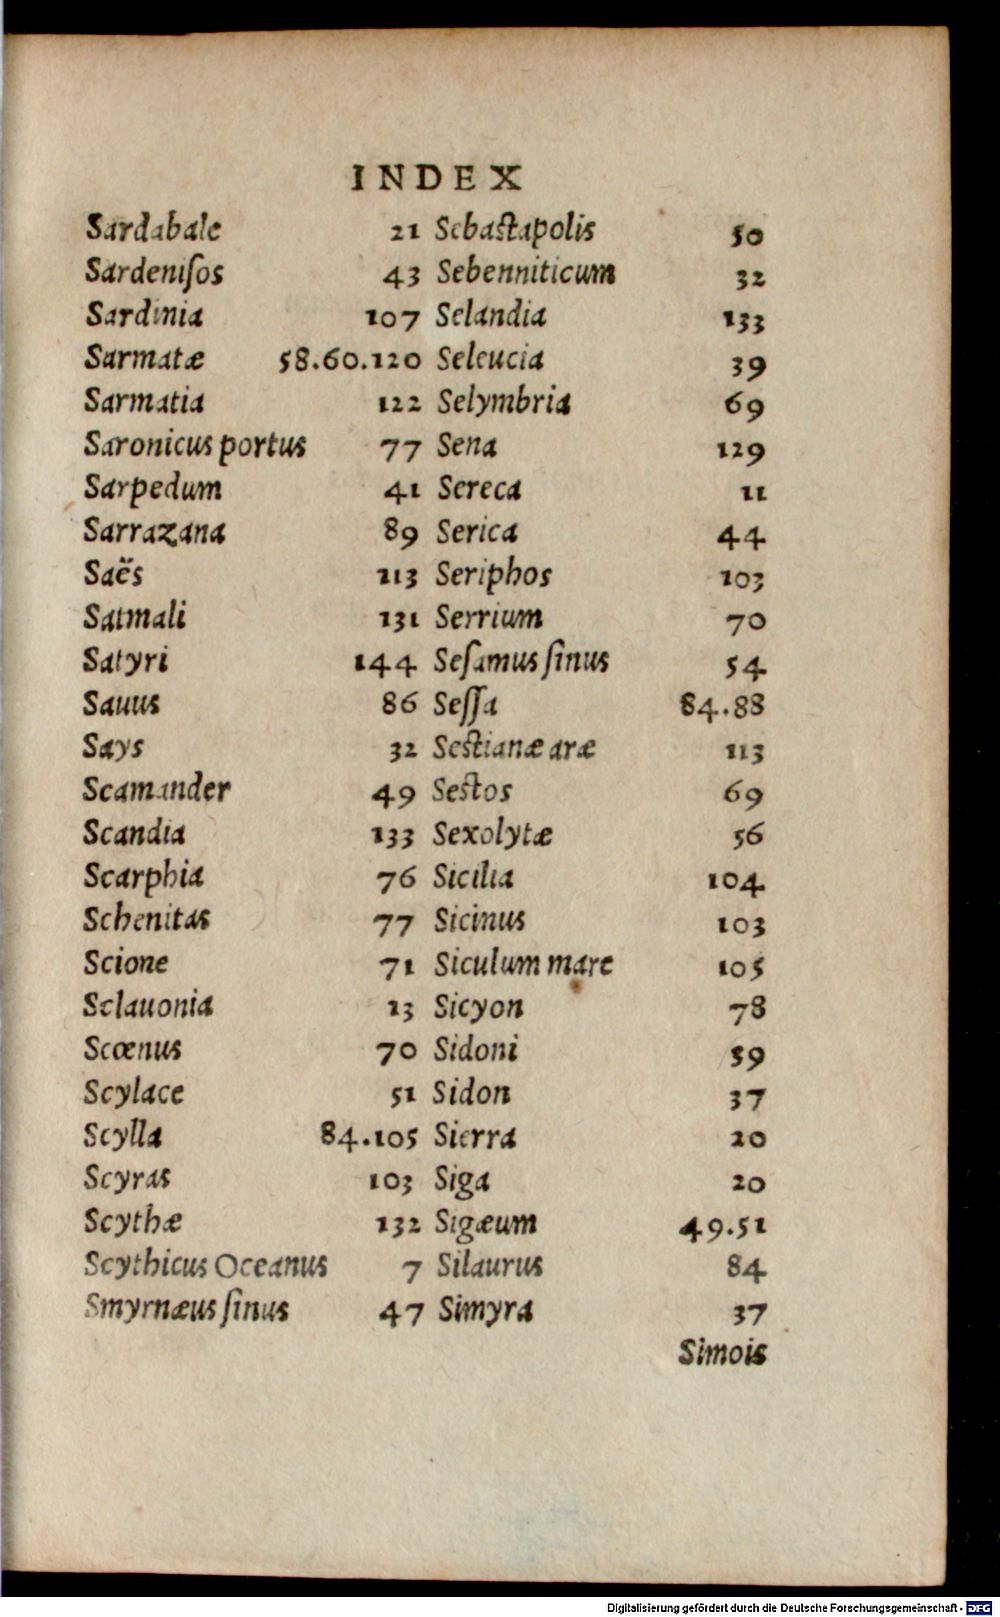 INDEX
Sardabale 21
Sardeniſos 43
Sardinia 107
Sarmatæ 58.60.120
Sarmatia 122
Saronicus portus 77
Sarpedum 41
Sarrazana 89
Saës 113
Satmali 131
Satyri 144
Sauus 86
Says 32
Scamander 49
Scandia 133
Scarphia 76
Schenitas 77
Scione 71
Sclauonia 13
Scœnus 70
Scylace 51
Scylla 84.105
Scyras 103
Scythæ 132
Scythicus Oceanus 7
Smyrnæus ſinus 47
Sebastapolis 50
Sebenniticum 32
Selandia 133
Seleucia 39
Selymbria 69
Sena 129
Sereca 11
Serica 44
Seriphos 103
Serrium 70
Seſamus ſinus 54
Seſſa 84.88
Sestianæ aræ 113
Sestos 69
Sexolytæ 56
Sicilia 104
Sicinus 103
Siculum mare 105
Sicyon 78
Sidoni 59
Sidon 37
Sierra 20
Siga 20
Sigæum 49.51
Silaurus 84
Simyra 37
Simois
Digitalisierung gefördert durch die Deutsche Forschungsgemeinschaft - DFG